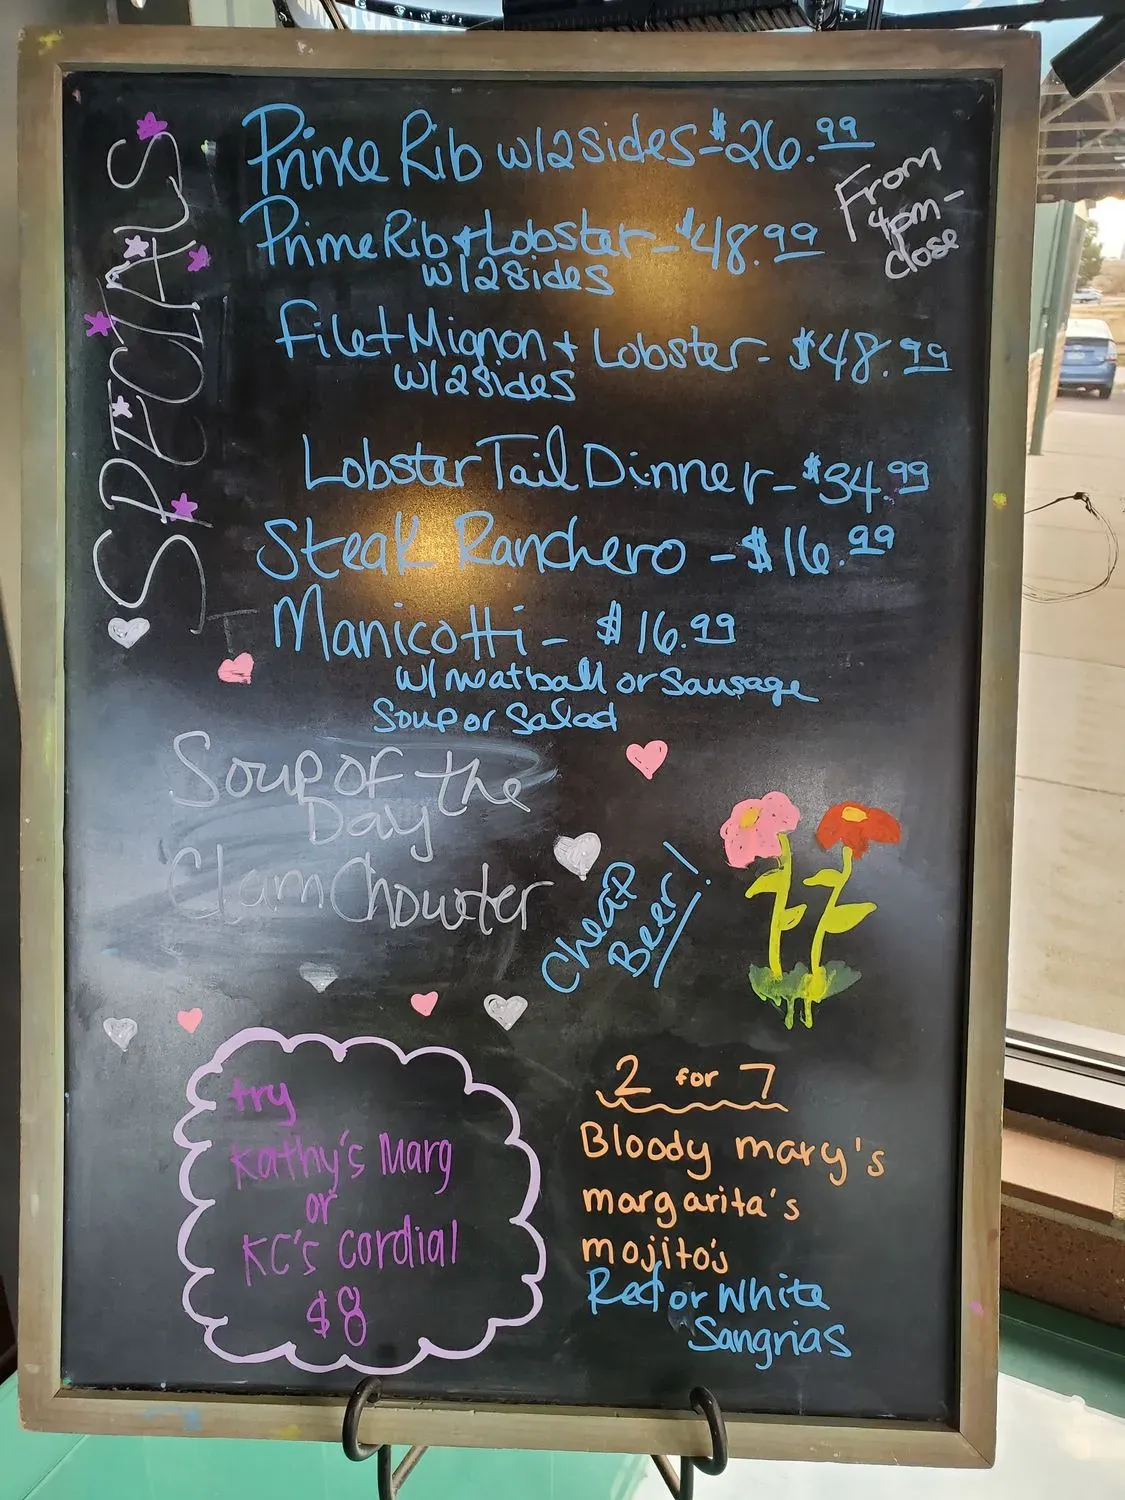 SPECIALS
Prime Rib w/2sides-$26.99
From
4pm-
close
Prime Rib + Lobster-$48.99
w/2sides
Filet Mignon + Lobster-$48.99
w/2sides
Lobster Tail Dinner-$34.99
Steak Ranchero -$16.99
Manicotti- $16.99
w/ meatball or Sausage
Soup or Salad
Soup of the
Day
Clam Chowter
Cheap
Beer!
try
Kathy's Marg
or
KC's Cordial
$8
2 for 7
Bloody mary's
margarita's
mojito's
Red or White
Sangrias